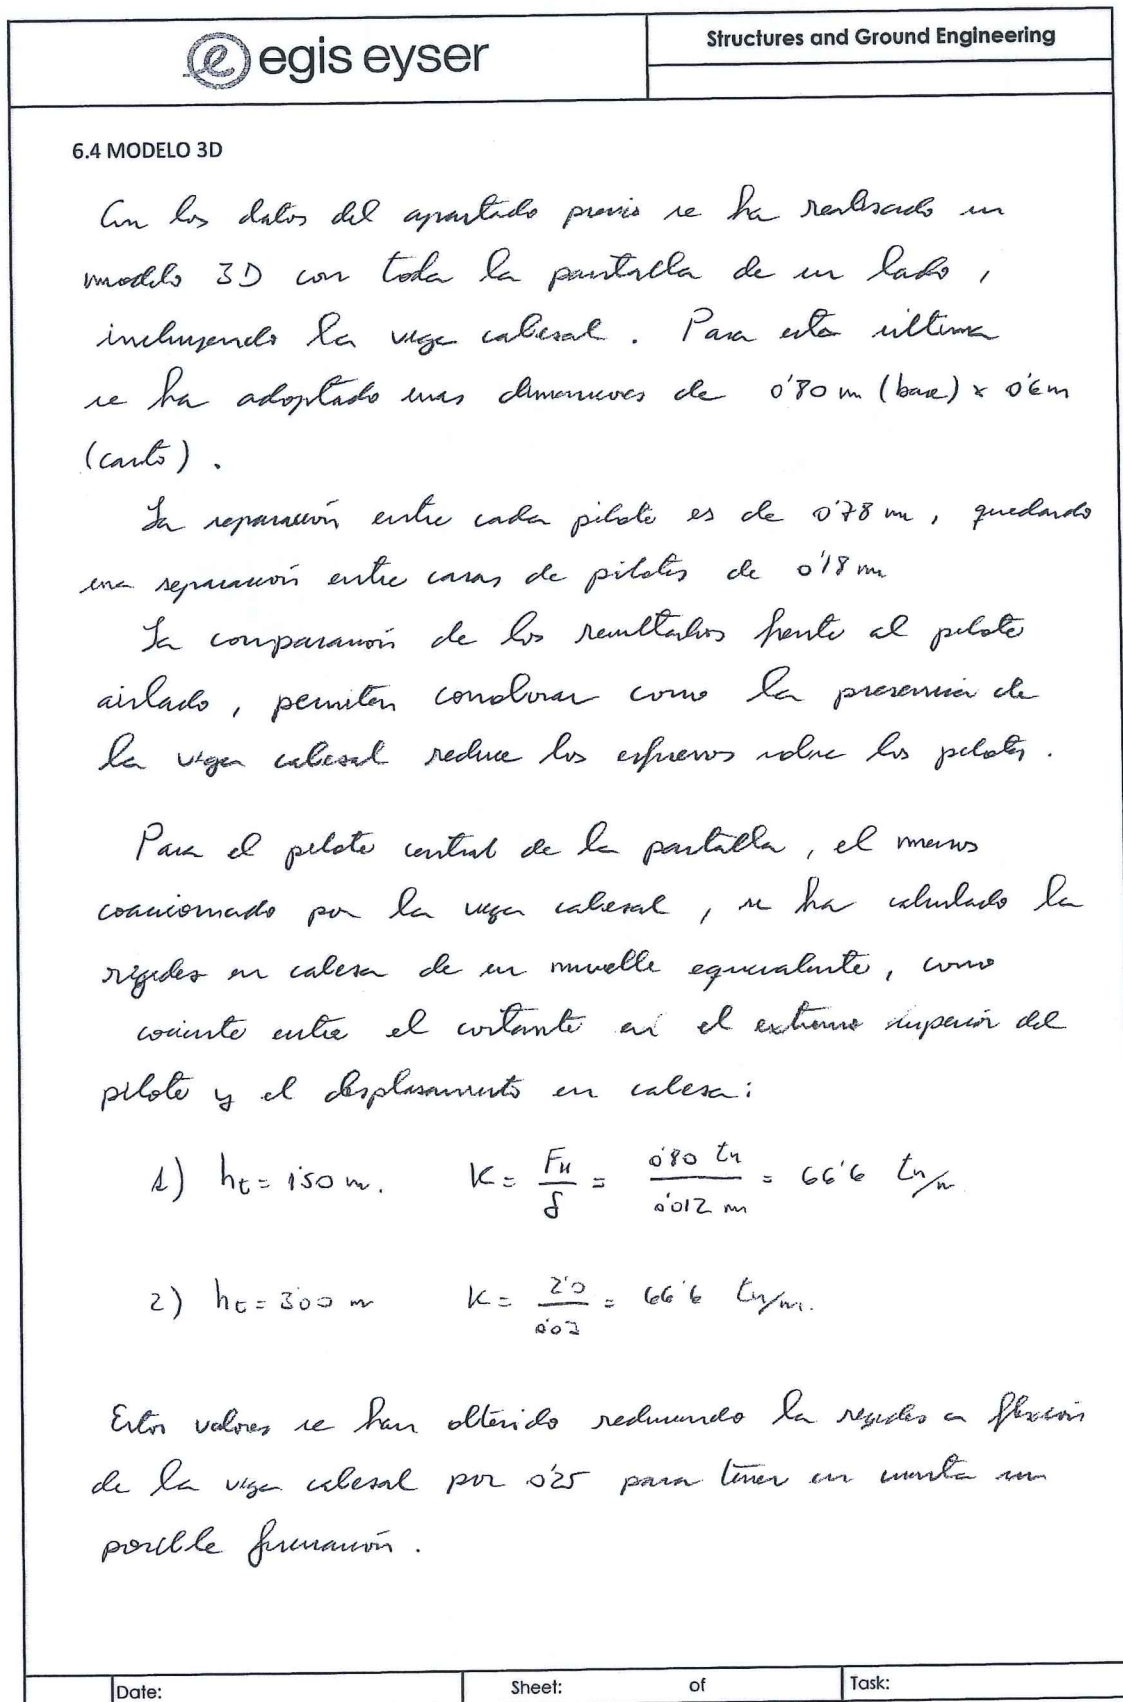 egis eyser
Structures and Ground Engineering
6.4 MODELO 3D
Con los datos del apartado previo se ha realizado un
modelo 3D con toda la pantalla de un lado,
incluyendo la viga cabezal. Para esta última
se ha adoptado unas dimensiones de 0'80 m (base) x 0'6m
(canto).
La separación entre cada pilote es de 0'78 m, quedando
una separación entre caras de pilotes de 0'18 m
La comparación de los resultados frente al pilote
aislado, permiten corroborar como la presencia de
la viga cabezal reduce los esfuerzos sobre los pilotes.
Para el pilote central de la pantalla, el menos
coaccionado por la viga cabezal, se ha calculado la
rigidez en cabeza de un muelle equivalente, como
cociente entre el cortante en el extremo superior del
pilote y el desplazamiento en cabeza:
1) ht = 1'50 m. K = FH/δ = 0'80 tn/0'012 m = 66'6 tn/m
2) ht = 3'00 m K = 2'0/0'03 = 66'6 tn/m.
Estos valores se han obtenido reduciendo la rigidez a flexión
de la viga cabezal por 0'25 para tener en cuenta un
posible fisuración.
Date:
Sheet: of
Task: